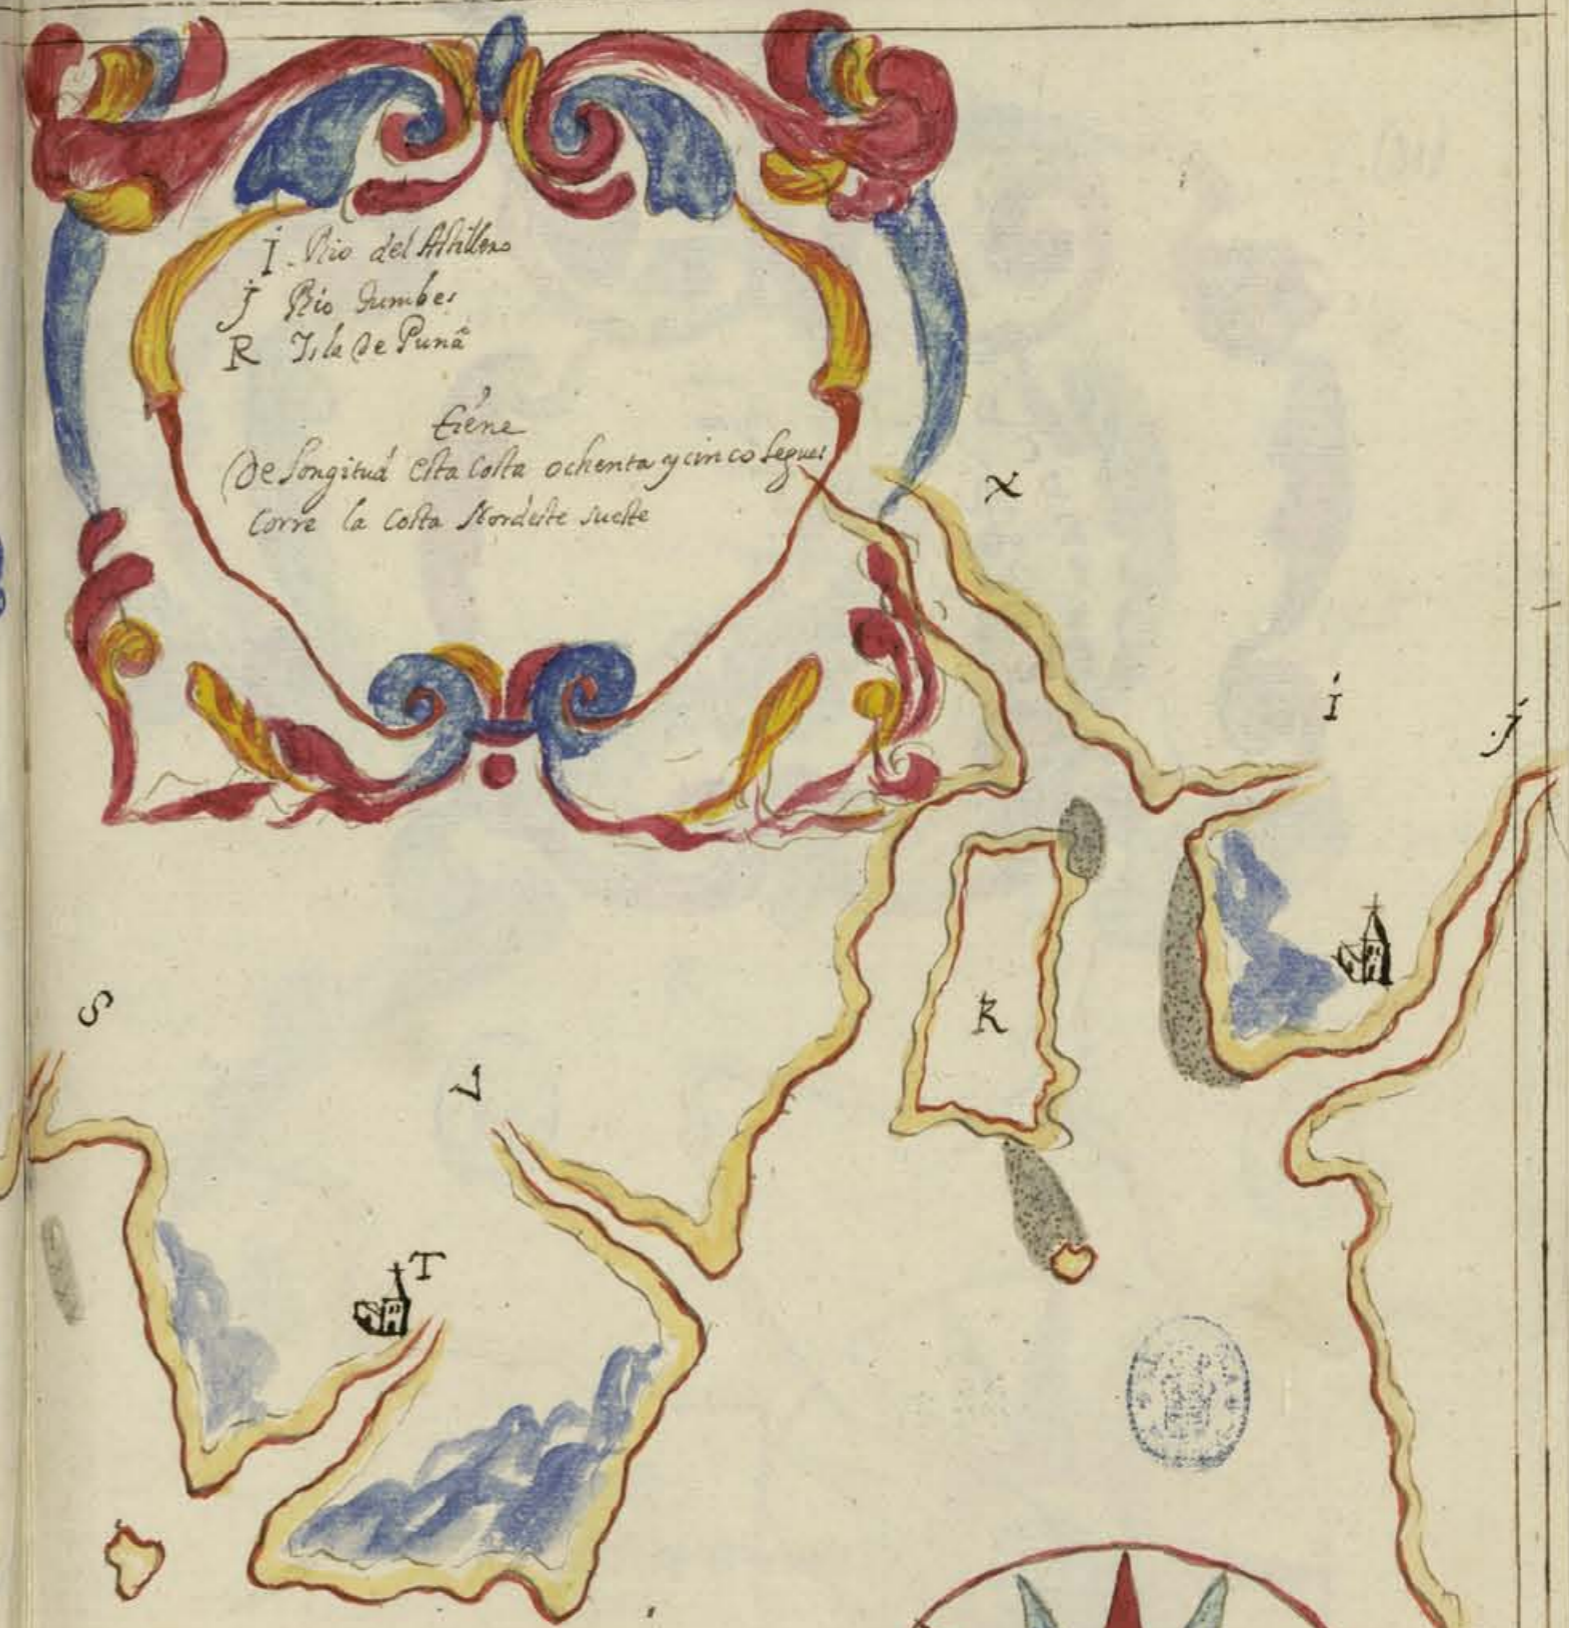 I Rio del Astillero
j Rio Tumbes
R Isla de Puná
tiene
De Longitud esta Costa ochenta y cinco leguas
Corre la Costa Nordeste sueste
X
i
j
R
S
V
T